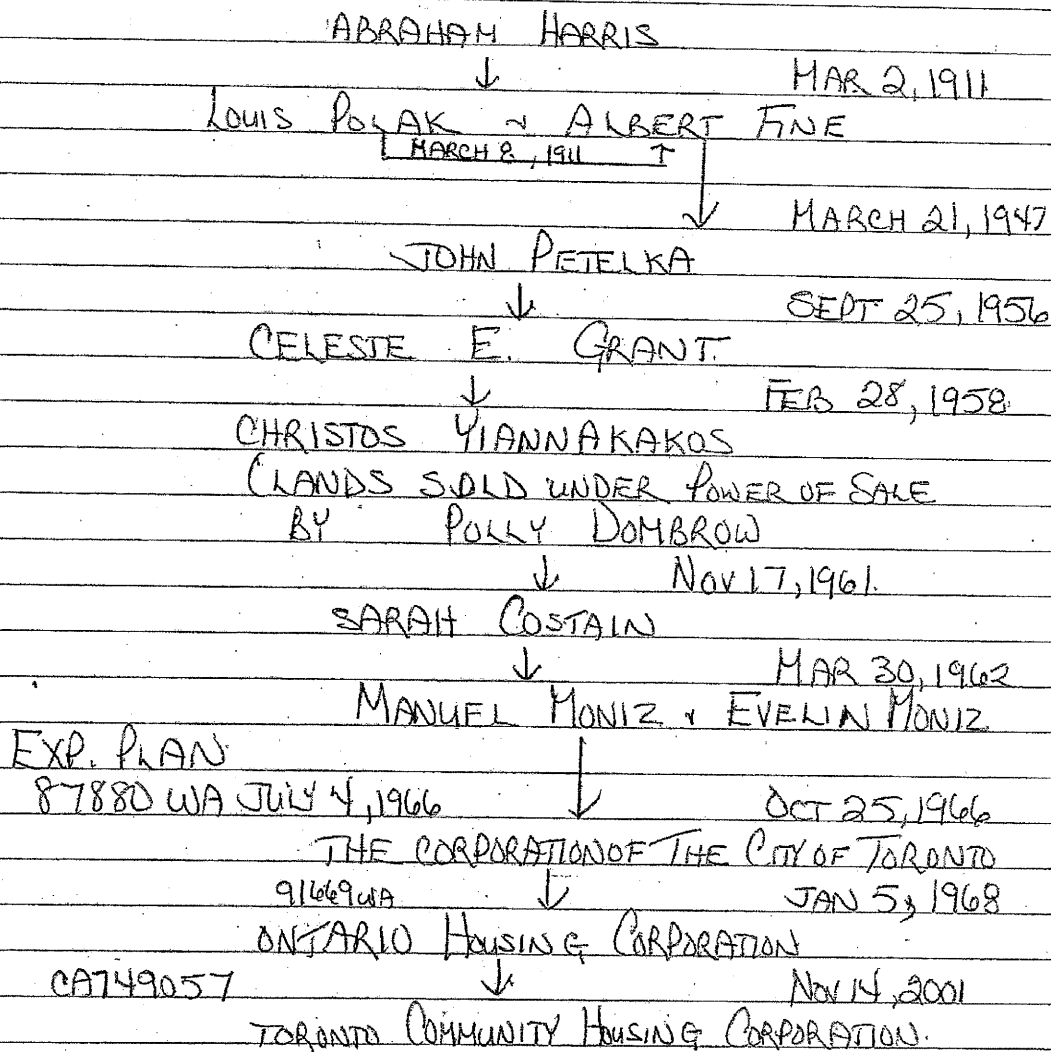 ABRAHAM HARRIS
↓ MAR 2, 1911
LOUIS POLAK & ALBERT FINE
MARCH 8, 1911 ↑
↓ MARCH 21, 1947
JOHN PETELKA
↓ SEPT 25, 1956
CELESTE E. GRANT.
↓ FEB 28, 1958
CHRISTOS YIANNAKAKOS
(LANDS SOLD UNDER POWER OF SALE
BY POLLY DOMBROW
↓ NOV 17, 1961.
SARAH COSTAIN
↓ MAR 30, 1962
MANUEL MONIZ & EVELIN MONIZ
EXP. PLAN
87880 WA JULY 4, 1966 ↓ OCT 25, 1966
THE CORPORATION OF THE CITY OF TORONTO
91669WA ↓ JAN 5, 1968
ONTARIO HOUSING CORPORATION
CA749057 ↓ NOV 14, 2001
TORONTO COMMUNITY HOUSING CORPORATION.